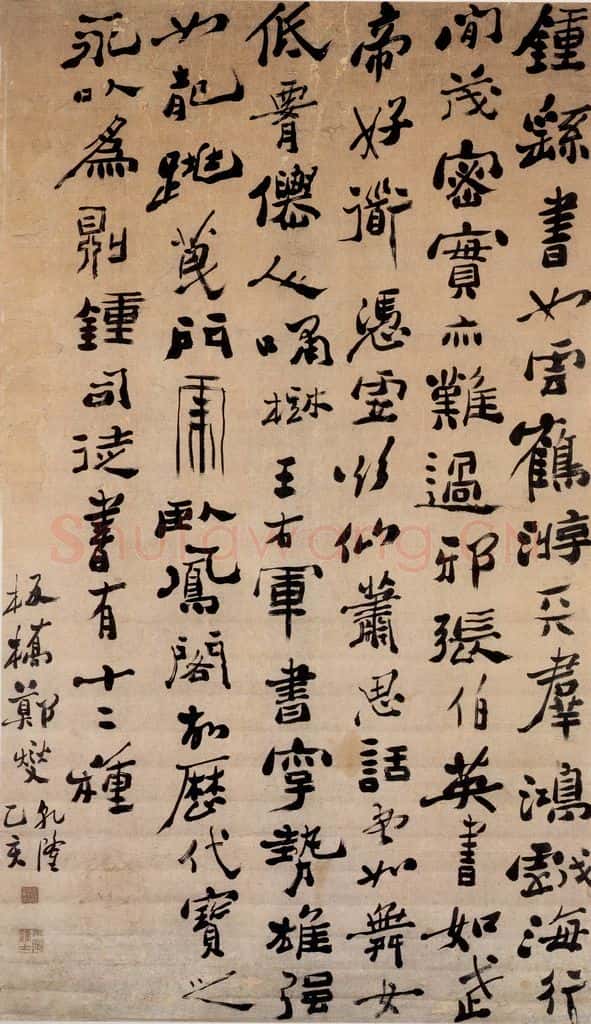 鍾繇書如雲鶴游天羣鴻戲海行
間茂密實亦難過邪張伯英書如武
帝好衜憑虛欲仙蕭思話書如舞女
低霄僊人嘯樹王右軍書字勢雄强
如龍跳門虎臥鳳閣故歷代寶之
永以為鼎鍾司徒書有十二種
板橋鄭燮
乾隆
乙亥
Shufawang.CN